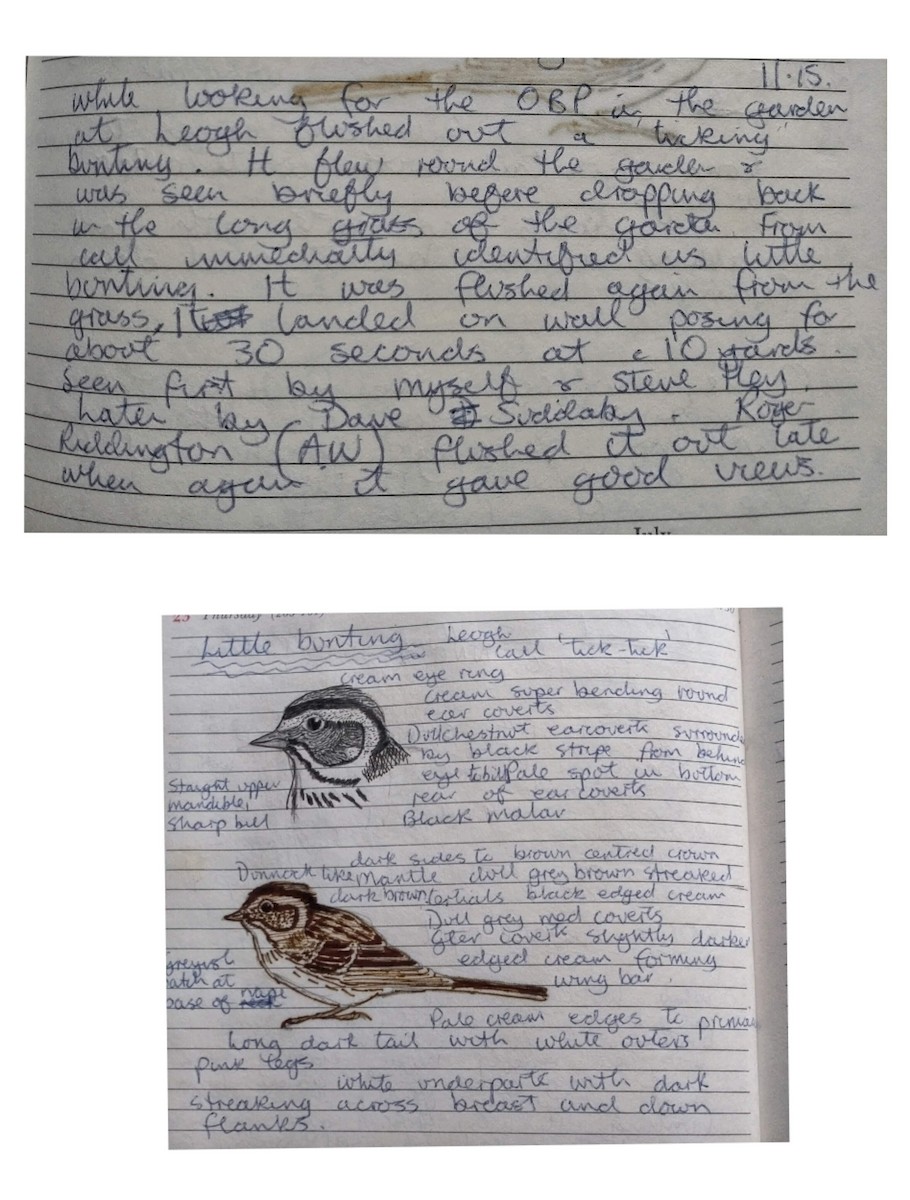 11.15.
while looking for the OBP in the garden
at Leogh flushed out a 'ticking'
bunting. It flew round the garden &
was seen briefly before dropping back
in the long grass of the garden. From
call immediatly identified as little
bunting. It was flushed again from the
grass, It landed on wall posing for
about 30 seconds at c 10 yards.
Seen first by myself & Steve
Later by Dave Suddaby. Roger
Riddington (AW) flushed it out late
when again it gave good views.
July
Thursday
Little bunting Leogh
call 'tick-tick'
cream eye ring
cream super bending round
ear coverts
Dull chestnut earcoverts surrounde
by black stripe from behind
eye to bill Pale spot in bottom
rear of ear coverts
Black malar
Straight upper
mandible,
sharp bill
dark sides to brown centred crown
Dunnock like Mantle dull grey brown streaked
dark brown, tertials black edged cream
Dull grey med coverts
Gter coverts slightly darker
edged cream forming
wing bar.
greyish
patch at
base of nape
Pale cream edges to primar
Long dark tail with white outers
Pink legs
white underparts with dark
streaking across breast and down
flanks.